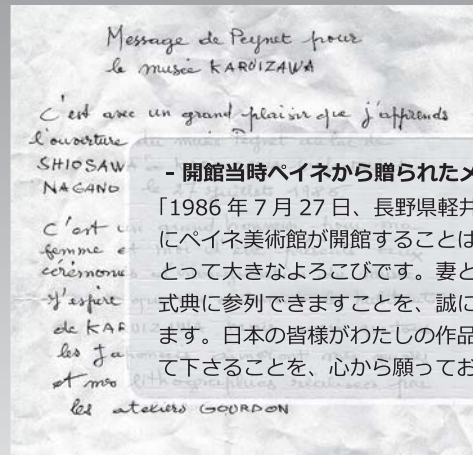 Message de Peynet pour
le musée KARUIZAWA
C'est avec un grand plaisir que j'apprends
l'ouverture du musée Peynet au lac de
SHIOSAWA
NAGANO le 27 juillet 1986
C'est un
femme et
cérémonie
J'espère
de KAR
les Ja
et mes lithographies réalisées par
les ateliers GOURDON
- 開館当時ペイネから贈られたメ
「1986 年 7 月 27 日、長野県軽井
にペイネ美術館が開館することは
とって大きなよろこびです。妻と
式典に参列できますことを、誠に
ます。日本の皆様がわたしの作品
て下さることを、心から願ってお